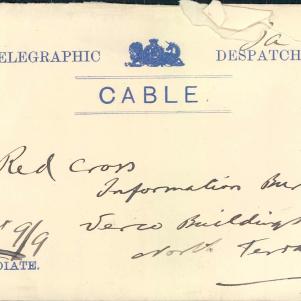 ELEGRAPHIC DESPATCH
CABLE.
Red Cross
Information Bur
Verco Building
9/9
North Terra
DIATE.